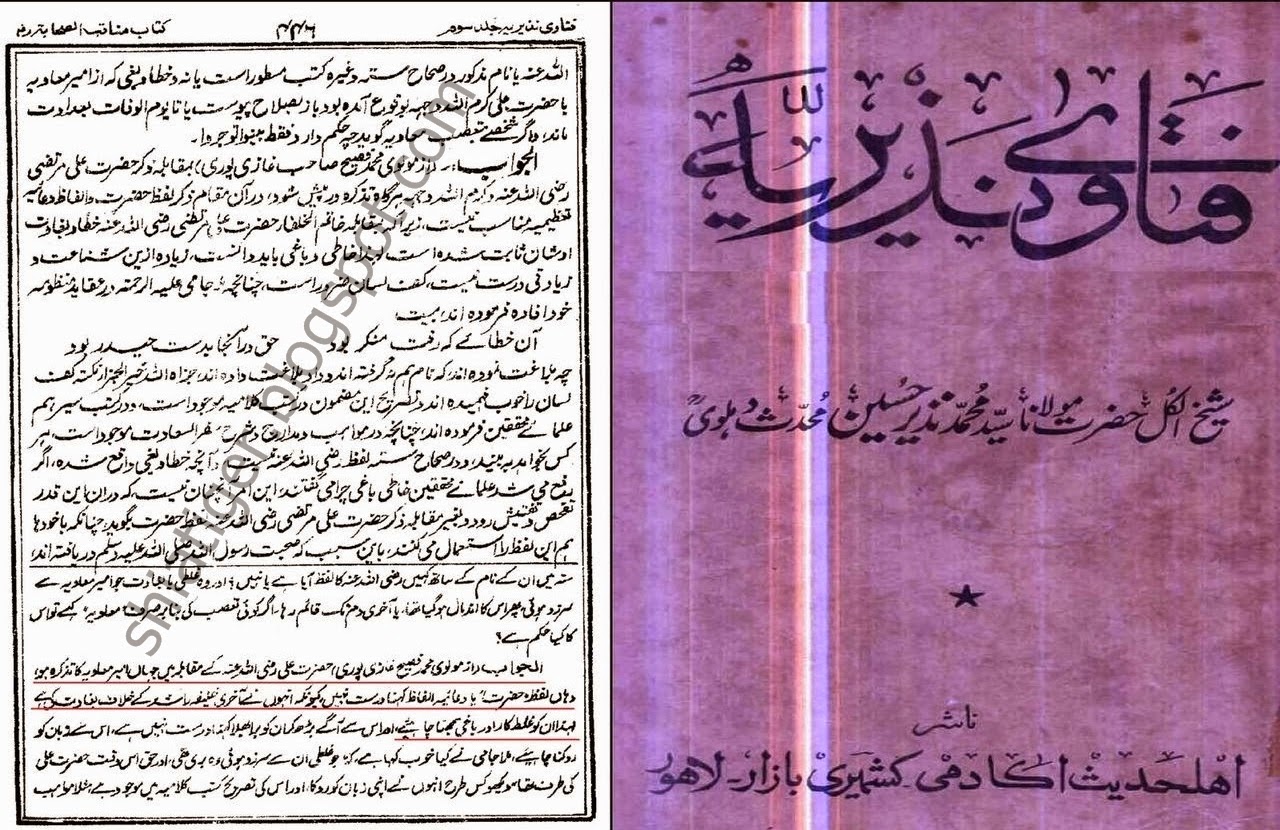 فتاوی نذیریہ جلد سوم
۴۴۶
کتاب مناقب الصحابۃ رضہ
اللہ عنہ یا نام مذکور در صحاح ستہ وغیرہ کتب مسطور است یا نہ وخطاو بغی کہ از امیر معاویہ
با حضرت علی کرم اللہ وجہہ بوقوع آمدہ بود باز بصلاح پیوست یا تا یوم الوفات بعداوت
ماند، واگر شخصے بتعصب معاویہ گوید چہ حکم دارد فقط بینوا توجروا۔
الجواب:۔ (از مولوی محمد فصیح صاحب غازی پوری) بمقابلہ ذکر حضرت علی مرتضی
رضی اللہ عنہ وکرم اللہ وجہہ ہرگاہ تذکرہ درپیش شود، درآن مقام ذکر بلفظ حضرت، والفاظ دعائیہ
تعظیمیہ مناسب نیست، زیراکہ بمقابلہ خاتم الخلفاء حضرت علی مرتضی رضی اللہ عنہ خطاو بغاوت
اوشان ثابت شدہ است، لہذا خاطی و باغی باید دانست، زیادہ ازین شناعت و
زیادتی درست نیست، کف لسان ضرور است، چنانچہ ملا جامی علیہ الرحمتہ در عقاید منظومہ
خود افادہ فرمودہ اند، بیت
آن خطائے کہ رفت منکر بود حق درآنجا بدست حیدر بود
چہ بلاغت نمودہ اند، کہ نام ہم نہ گرفتہ اند وداد بلاغت دادہ اند، جزاہ اللہ خیر الجزاء نکتہ کف
لسان را خوب فہمیدہ اند، وتصریح این مضمون در کتب کلامیہ موجود است، ودر کتب سیر ہم
علمائے محققین فرمودہ اند، چنانچہ در مواہب ومدارج وشرح سفر السعادت موجود است، ہر
کس بخواہد بہ بیند، ودر صحاح ستہ لفظ رضی اللہ عنہ نیست، وآنچہ خطاو بغی واقع شدہ، اگر
رفع می شد علمائے محققین خاطی باغی چرا می گفتند، این امر پنہان نیست، کہ دران این قدر
تفحص وتفتیش رود وبغیر مقابلہ ذکر حضرت علی مرتضی رضی اللہ عنہ بلفظ حضرت بگوید، چنانکہ باخودہا
ہم این لفظ را استعمال می کنند، باین سبب کہ صحبت رسول اللہ صلی اللہ علیہ وسلم دریافتہ اند،
ستہ میں ان کے نام کے ساتھ کہیں رضی اللہ عنہ کا لفظ آیا ہے یا نہیں؟ اور وہ غلطی یا بغاوت جو امیر معاویہ سے
سرزد ہوئی، پھر اس کا اندمال ہوگیا تھا، یا آخری دم تک قائم رہا، اگر کوئی تعصب کی بنا پر صرف معاویہ کہے تو اس
کا کیا حکم ہے؟
الجواب (از مولوی محمد فصیح غازی پوری) حضرت علی رضی اللہ عنہ کے مقابلہ میں جہاں امیر معاویہ کا تذکرہ ہو،
وہاں لفظ "حضرت" یا دعائیہ الفاظ کہنا درست نہیں، کیونکہ انہوں نے آخری خلیفہ راشد کے خلاف بغاوت کی ہے
لہذا ان کو غلط کار اور باغی سمجھنا چاہیئے، اور اس سے آگے بڑھ کر ان کو برا بھلا کہنا درست نہیں ہے، اس سے زبان کو
روکنا چاہیے، ملا جامی نے کیا خوب کہا ہے، کہ جو غلطی ان سے سرزد ہوئی وہ بری تھی، اور حق اس وقت حضرت علی
کی طرف تھا، دیکھو کس طرح انہوں نے اپنی زبان کو روکا، اور اس کی تصریح کتب کلامیہ میں موجود ہے، مثلا مواہب
shiatiger.blogspot.com
فتاویٰ نذیریہ
شیخ الکل حضرت مولانا سید محمد نذیر حسین محدث دہلوی
ناشر
اہلحدیث اکادمی کشمیری بازار۔ لاہور